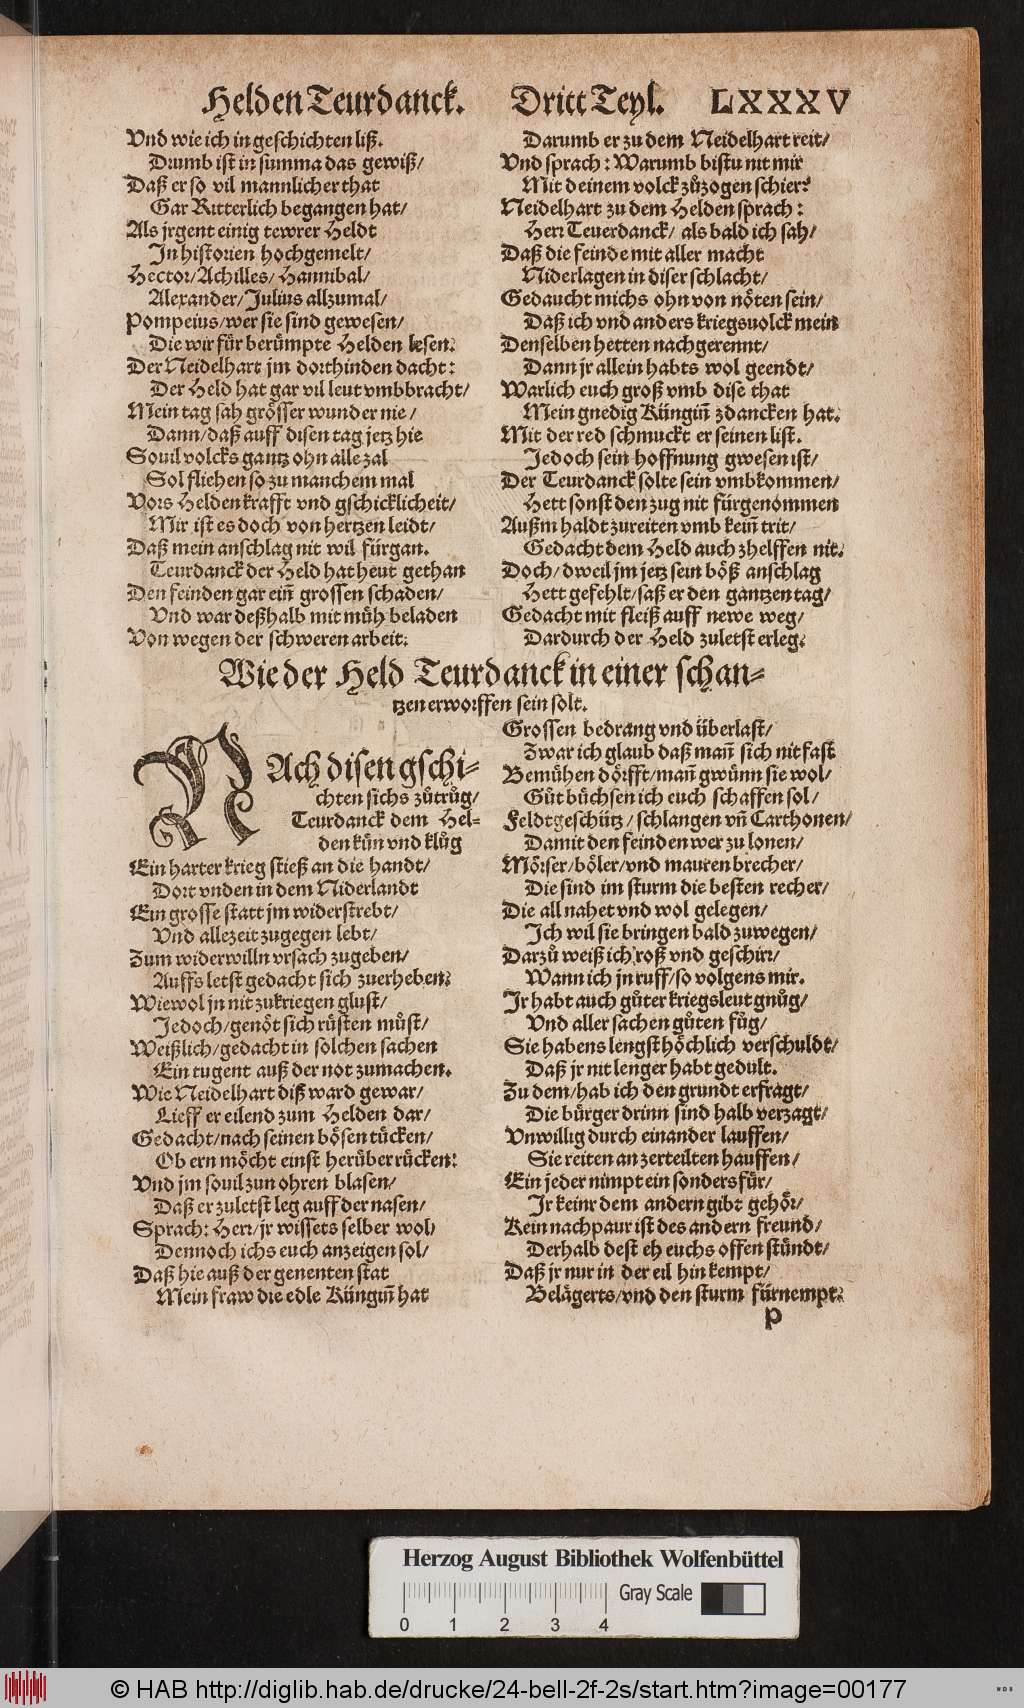 Helden Teurdanck. Dritt Teyl. LXXXV
Vnd wie ich in geschichten liß.
Drumb ist in summa das gewiß/
Daß er so vil mannlicher that
Gar Ritterlich begangen hat/
Als jrgent einig tewrer Heldt
In historien hochgemelt/
Hector/Achilles/Hannibal/
Alexander/Julius allzumal/
Pompeius/wer sie sind gewesen/
Die wir für berümpte Helden lesen.
Der Neidelhart jm dorthinden dacht:
Der Held hat gar vil leut vmbbracht/
Mein tag sah grösser wunder nie/
Dann/daß auff disen tag jetz hie
Souil volcks gantz ohn alle zal
Sol fliehen so zu manchem mal
Vors Helden krafft vnd gschicklicheit/
Mir ist es doch von hertzen leidt/
Daß mein anschlag nit wil fürgan.
Teurdanck der Held hat heut gethan
Den feinden gar ein̄ grossen schaden/
Vnd war deßhalb mit müh beladen
Von wegen der schweren arbeit.
Darumb er zu dem Neidelhart reit/
Vnd sprach: Warumb bistu nit mir
Mit deinem volck zůzogen schier?
Neidelhart zu dem Helden sprach:
Herr Teuerdanck/ als bald ich sah/
Daß die feinde mit aller macht
Niderlagen in diser schlacht/
Gedaucht michs ohn von nöten sein/
Daß ich vnd anders kriegsuolck mein
Denselben hetten nachgerennt/
Dann jr allein habts wol geendt/
Warlich euch groß vmb dise that
Mein gnedig Küngin̄ zdancken hat.
Mit der red schmuckt er seinen list.
Jedoch sein hoffnung gwesen ist/
Der Teurdanck solte sein vmbkommen/
Hett sonst den zug nit fürgenommen
Außm haldt zureiten vmb kein̄ trit/
Gedacht dem Held auch zhelffen nit.
Doch/dweil jm jetz sein böß anschlag
Hett gefehlt/saß er den gantzen tag/
Gedacht mit fleiß auff newe weg/
Dardurch der Held zuletst erleg.
Wie der Held Teurdanck in einer schan-
tzen erworffen sein solt.
NAch disen gschi-
chten sichs zůtrůg/
Teurdanck dem Hel-
den kün vnd klůg
Ein harter krieg stieß an die handt/
Dort vnden in dem Niderlandt
Ein grosse statt jm widerstrebt/
Vnd allezeit zugegen lebt/
Zum widerwilln vrsach zugeben/
Auffs letst gedacht sich zuerheben.
Wiewol jn nit zukriegen glust/
Jedoch/genöt sich rüsten můst/
Weißlich/gedacht in solchen sachen
Ein tugent auß der not zumachen.
Wie Neidelhart diß ward gewar/
Lieff er eilend zum Helden dar/
Gedacht/nach seinen bösen tücken/
Ob ern möcht einst herüber rücken:
Vnd jm souil zun ohren blasen/
Daß er zuletst leg auff der nasen/
Sprach: Herr/jr wissets selber wol/
Dennoch ichs euch anzeigen sol/
Daß hie auß der genenten stat
Mein fraw die edle Küngin̄ hat
Grossen bedrang vnd überlast/
Zwar ich glaub daß man̄ sich nit fast
Bemühen dörfft/man̄ gwünn sie wol/
Gůt büchsen ich euch schaffen sol/
Feldtgeschütz/ schlangen vn̄ Carthonen/
Damit den feinden wer zu lonen/
Mörser/böler/vnd mauren brecher/
Die sind im sturm die besten recher/
Die all nahet vnd wol gelegen/
Ich wil sie bringen bald zuwegen/
Darzů weiß ich roß vnd geschirr/
Wann ich jn ruff/so volgens mir.
Ir habt auch gůter kriegsleut gnůg/
Vnd aller sachen gůten fůg/
Sie habens lengst höchlich verschuldt/
Daß jr nit lenger habt gedult.
Zu dem/hab ich den grundt erfragt/
Die bürger drinn sind halb verzagt/
Vnwillig durch einander lauffen/
Sie reiten an zerteilten hauffen/
Ein jeder nimpt ein sonders für/
Ir keinr dem andern gibt gehör/
Kein nachpaur ist des andern freund/
Derhalb dest eh euchs offen stündt/
Daß jr nur in der eil hin kempt/
Belägerts/vnd den sturm fürnempt.
P
Herzog August Bibliothek Wolfenbüttel
Gray Scale
0 1 2 3 4
© HAB http://diglib.hab.de/drucke/24-bell-2f-2s/start.htm?image=00177